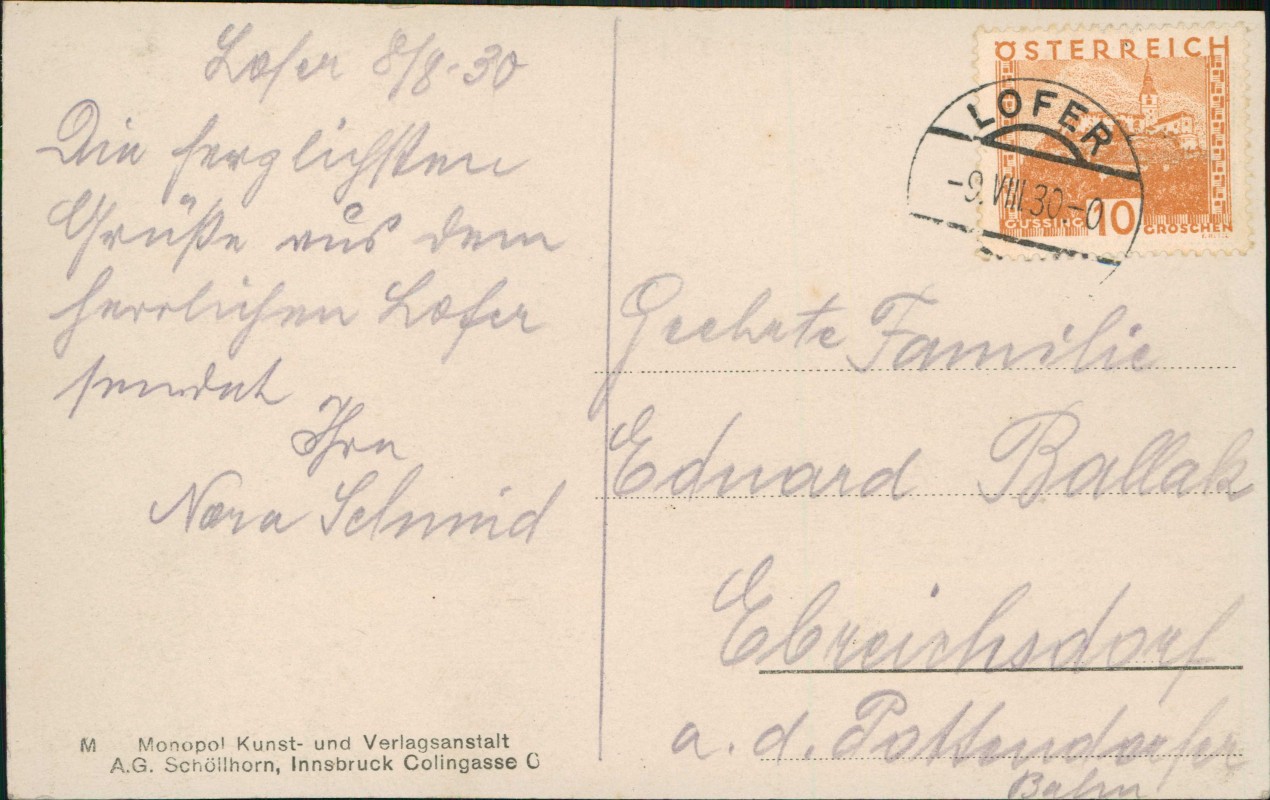 Lofer 8/8.30
Die herzlichsten
Grüße aus dem
herrlichen Lofer
sendet
Ihre
Nora Schmid
M Monopol Kunst- und Verlagsanstalt
A.G. Schöllhorn, Innsbruck Colingasse
ÖSTERREICH
GÜSSING 10 GROSCHEN
LOFER
-9.VIII.30-0
Geehrte Familie
Eduard Ballak
Ebreichsdorf
a. d. Pottendorfer
Bahn